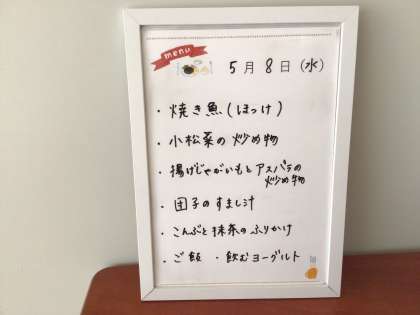 menu
5月8日(水)
・焼き魚(ほっけ)
・小松菜の炒め物
・揚げじゃがいもとアスパラの
炒め物
・団子のすまし汁
・こんぶと抹茶のふりかけ
・ご飯 ・飲むヨーグルト